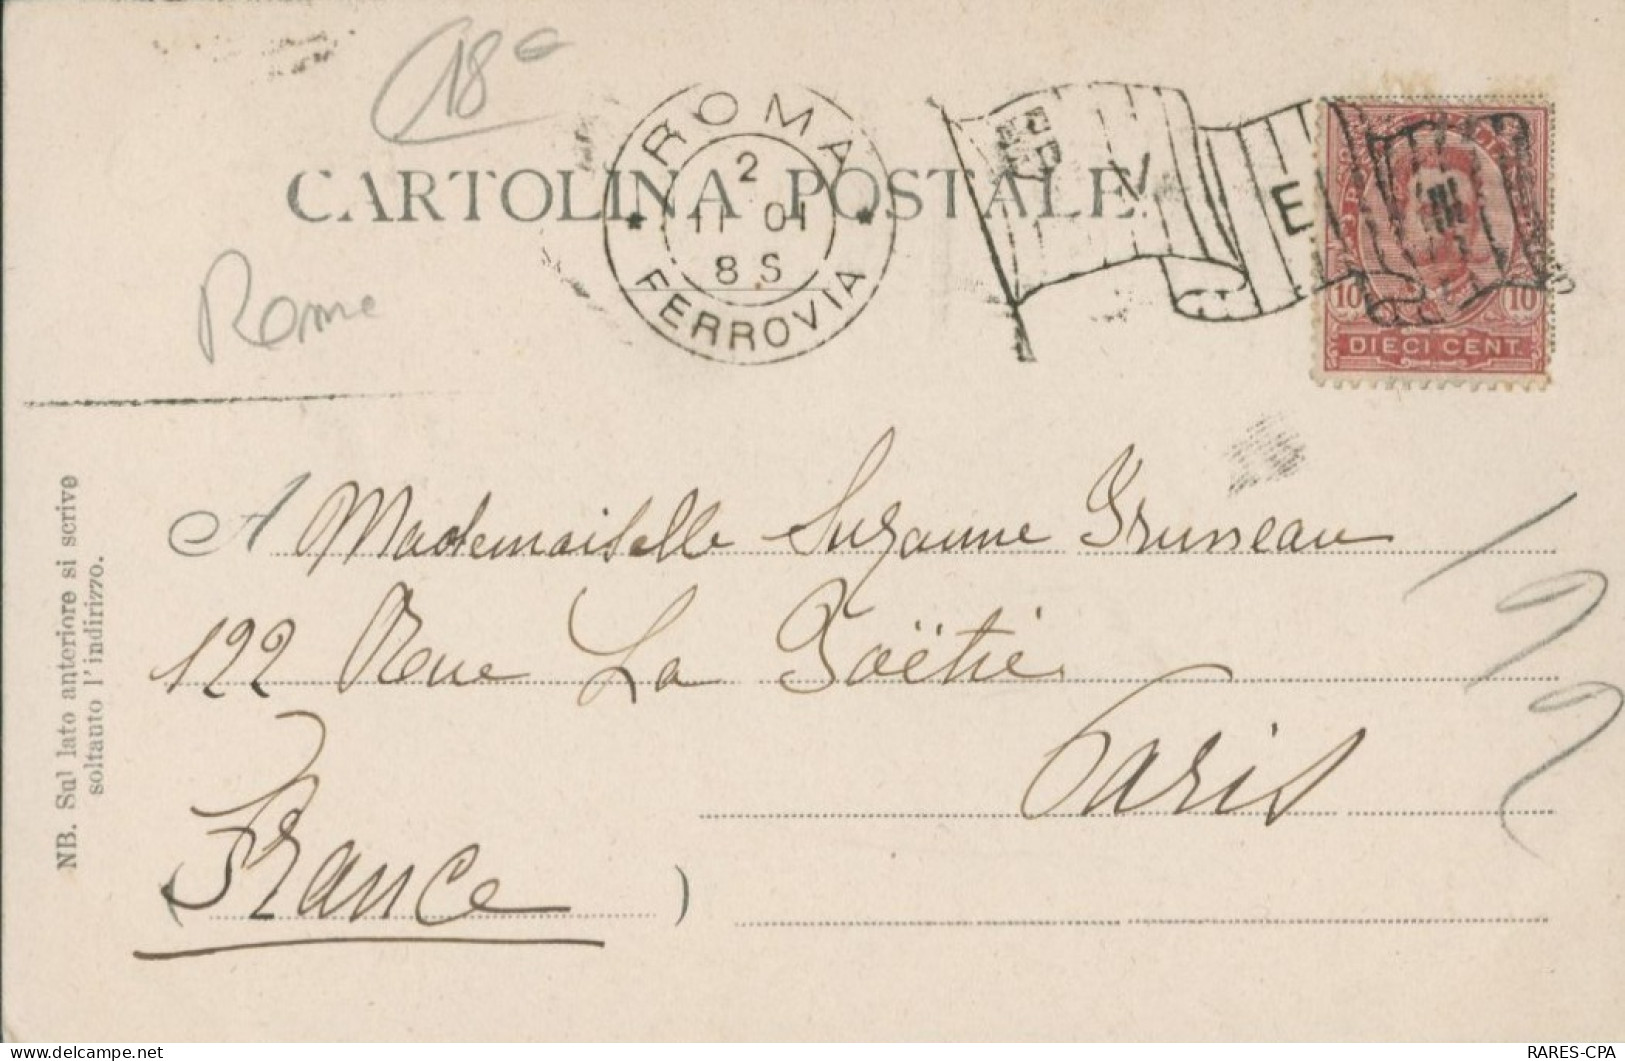 18 e
ROMA
2
11 01
8 S
FERROVIA
V E
CARTOLINA POSTALE
10 10
DIECI CENT.
Rome
NB. Sul lato anteriore si scrive
soltanto l'indirizzo.
A Mademoiselle Suzanne Grusseau
122 Rue La Boëtie
Paris
(France)
RARES-CPA